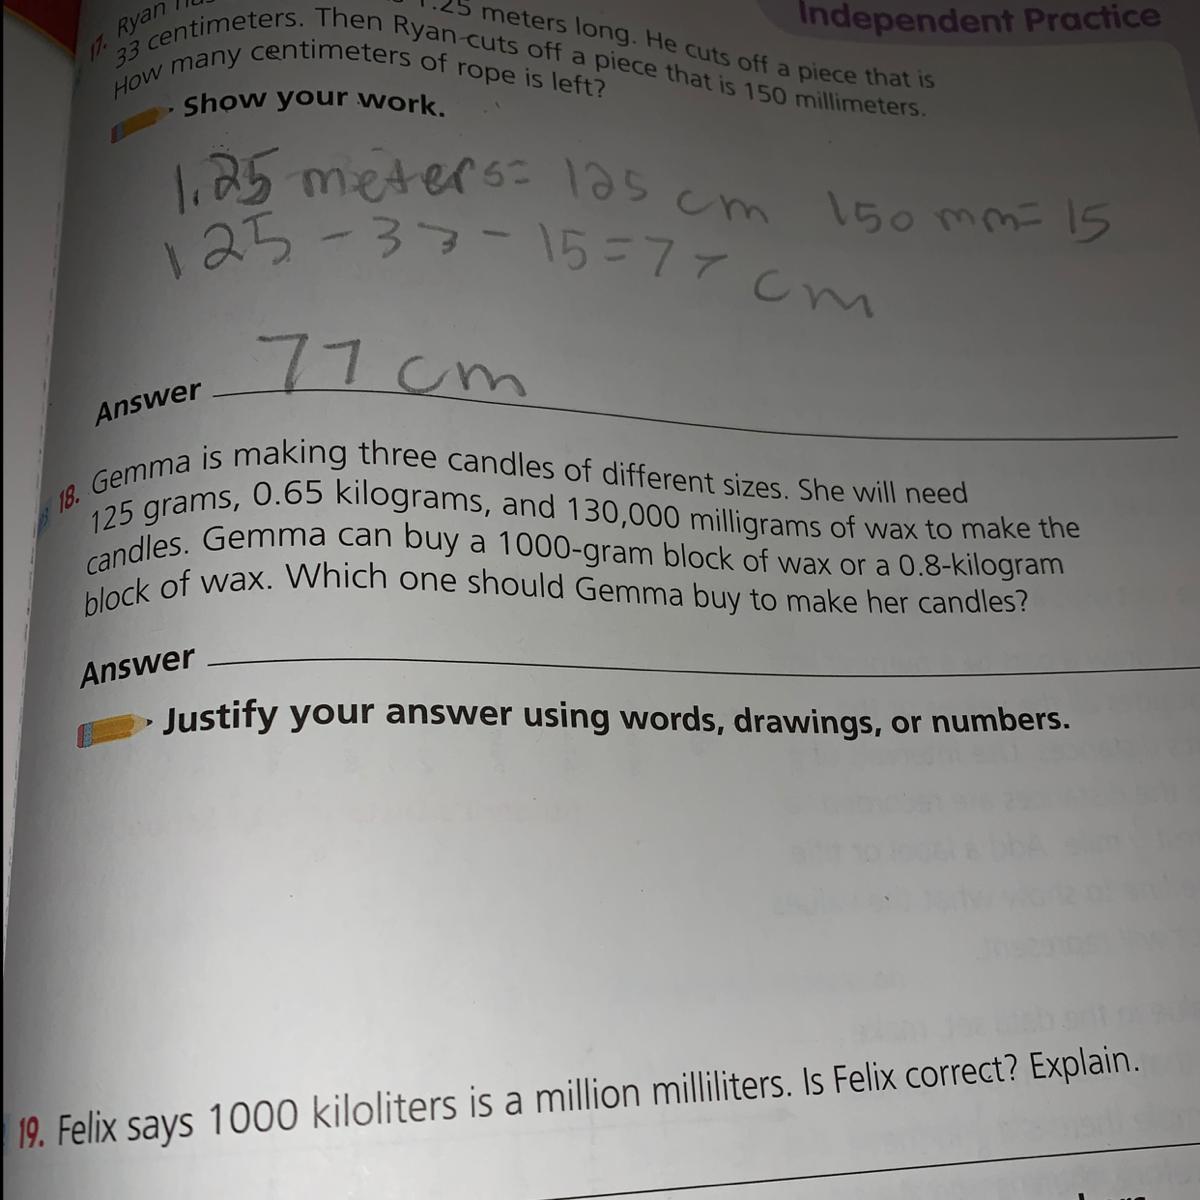 Independent Practice
17. Ryan 1.25 meters long. He cuts off a piece that is
33 centimeters. Then Ryan cuts off a piece that is 150 millimeters.
How many centimeters of rope is left?
Show your work.
1.25 meters= 125 cm 150 mm= 15
125 - 33 - 15=77 cm
Answer 77 cm
18. Gemma is making three candles of different sizes. She will need
125 grams, 0.65 kilograms, and 130,000 milligrams of wax to make the
candles. Gemma can buy a 1000-gram block of wax or a 0.8-kilogram
block of wax. Which one should Gemma buy to make her candles?
Answer
Justify your answer using words, drawings, or numbers.
19. Felix says 1000 kiloliters is a million milliliters. Is Felix correct? Explain.